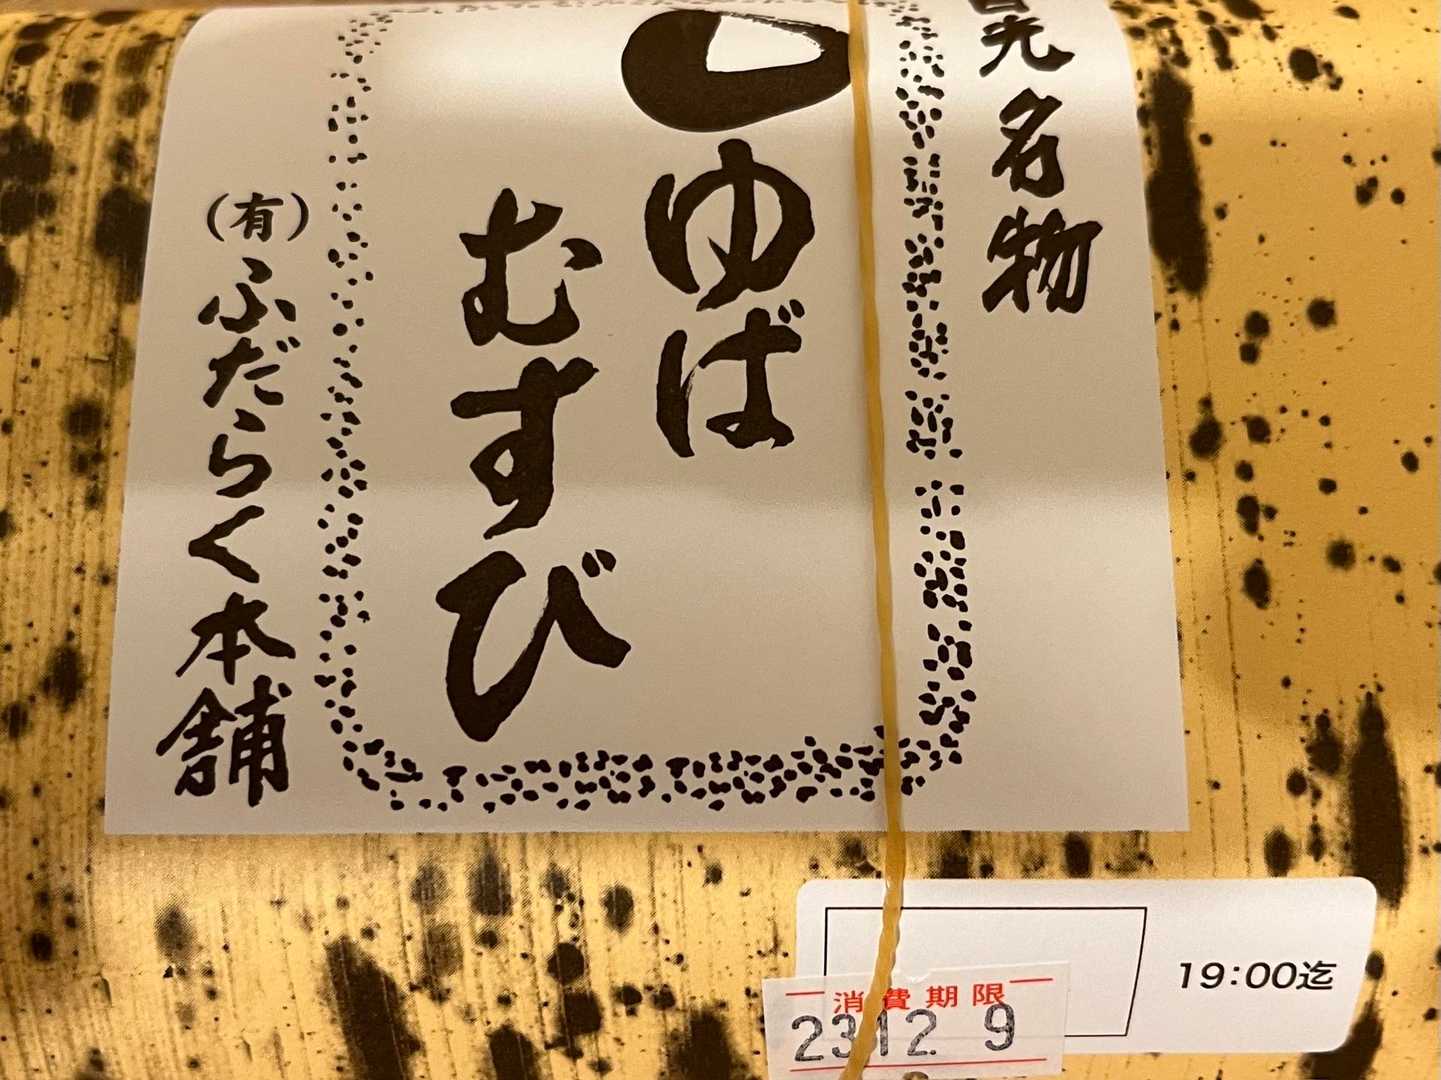 日光名物
ゆば
むすび
(有)ふだらく本舗
19:00迄
消費期限
23.12. 9